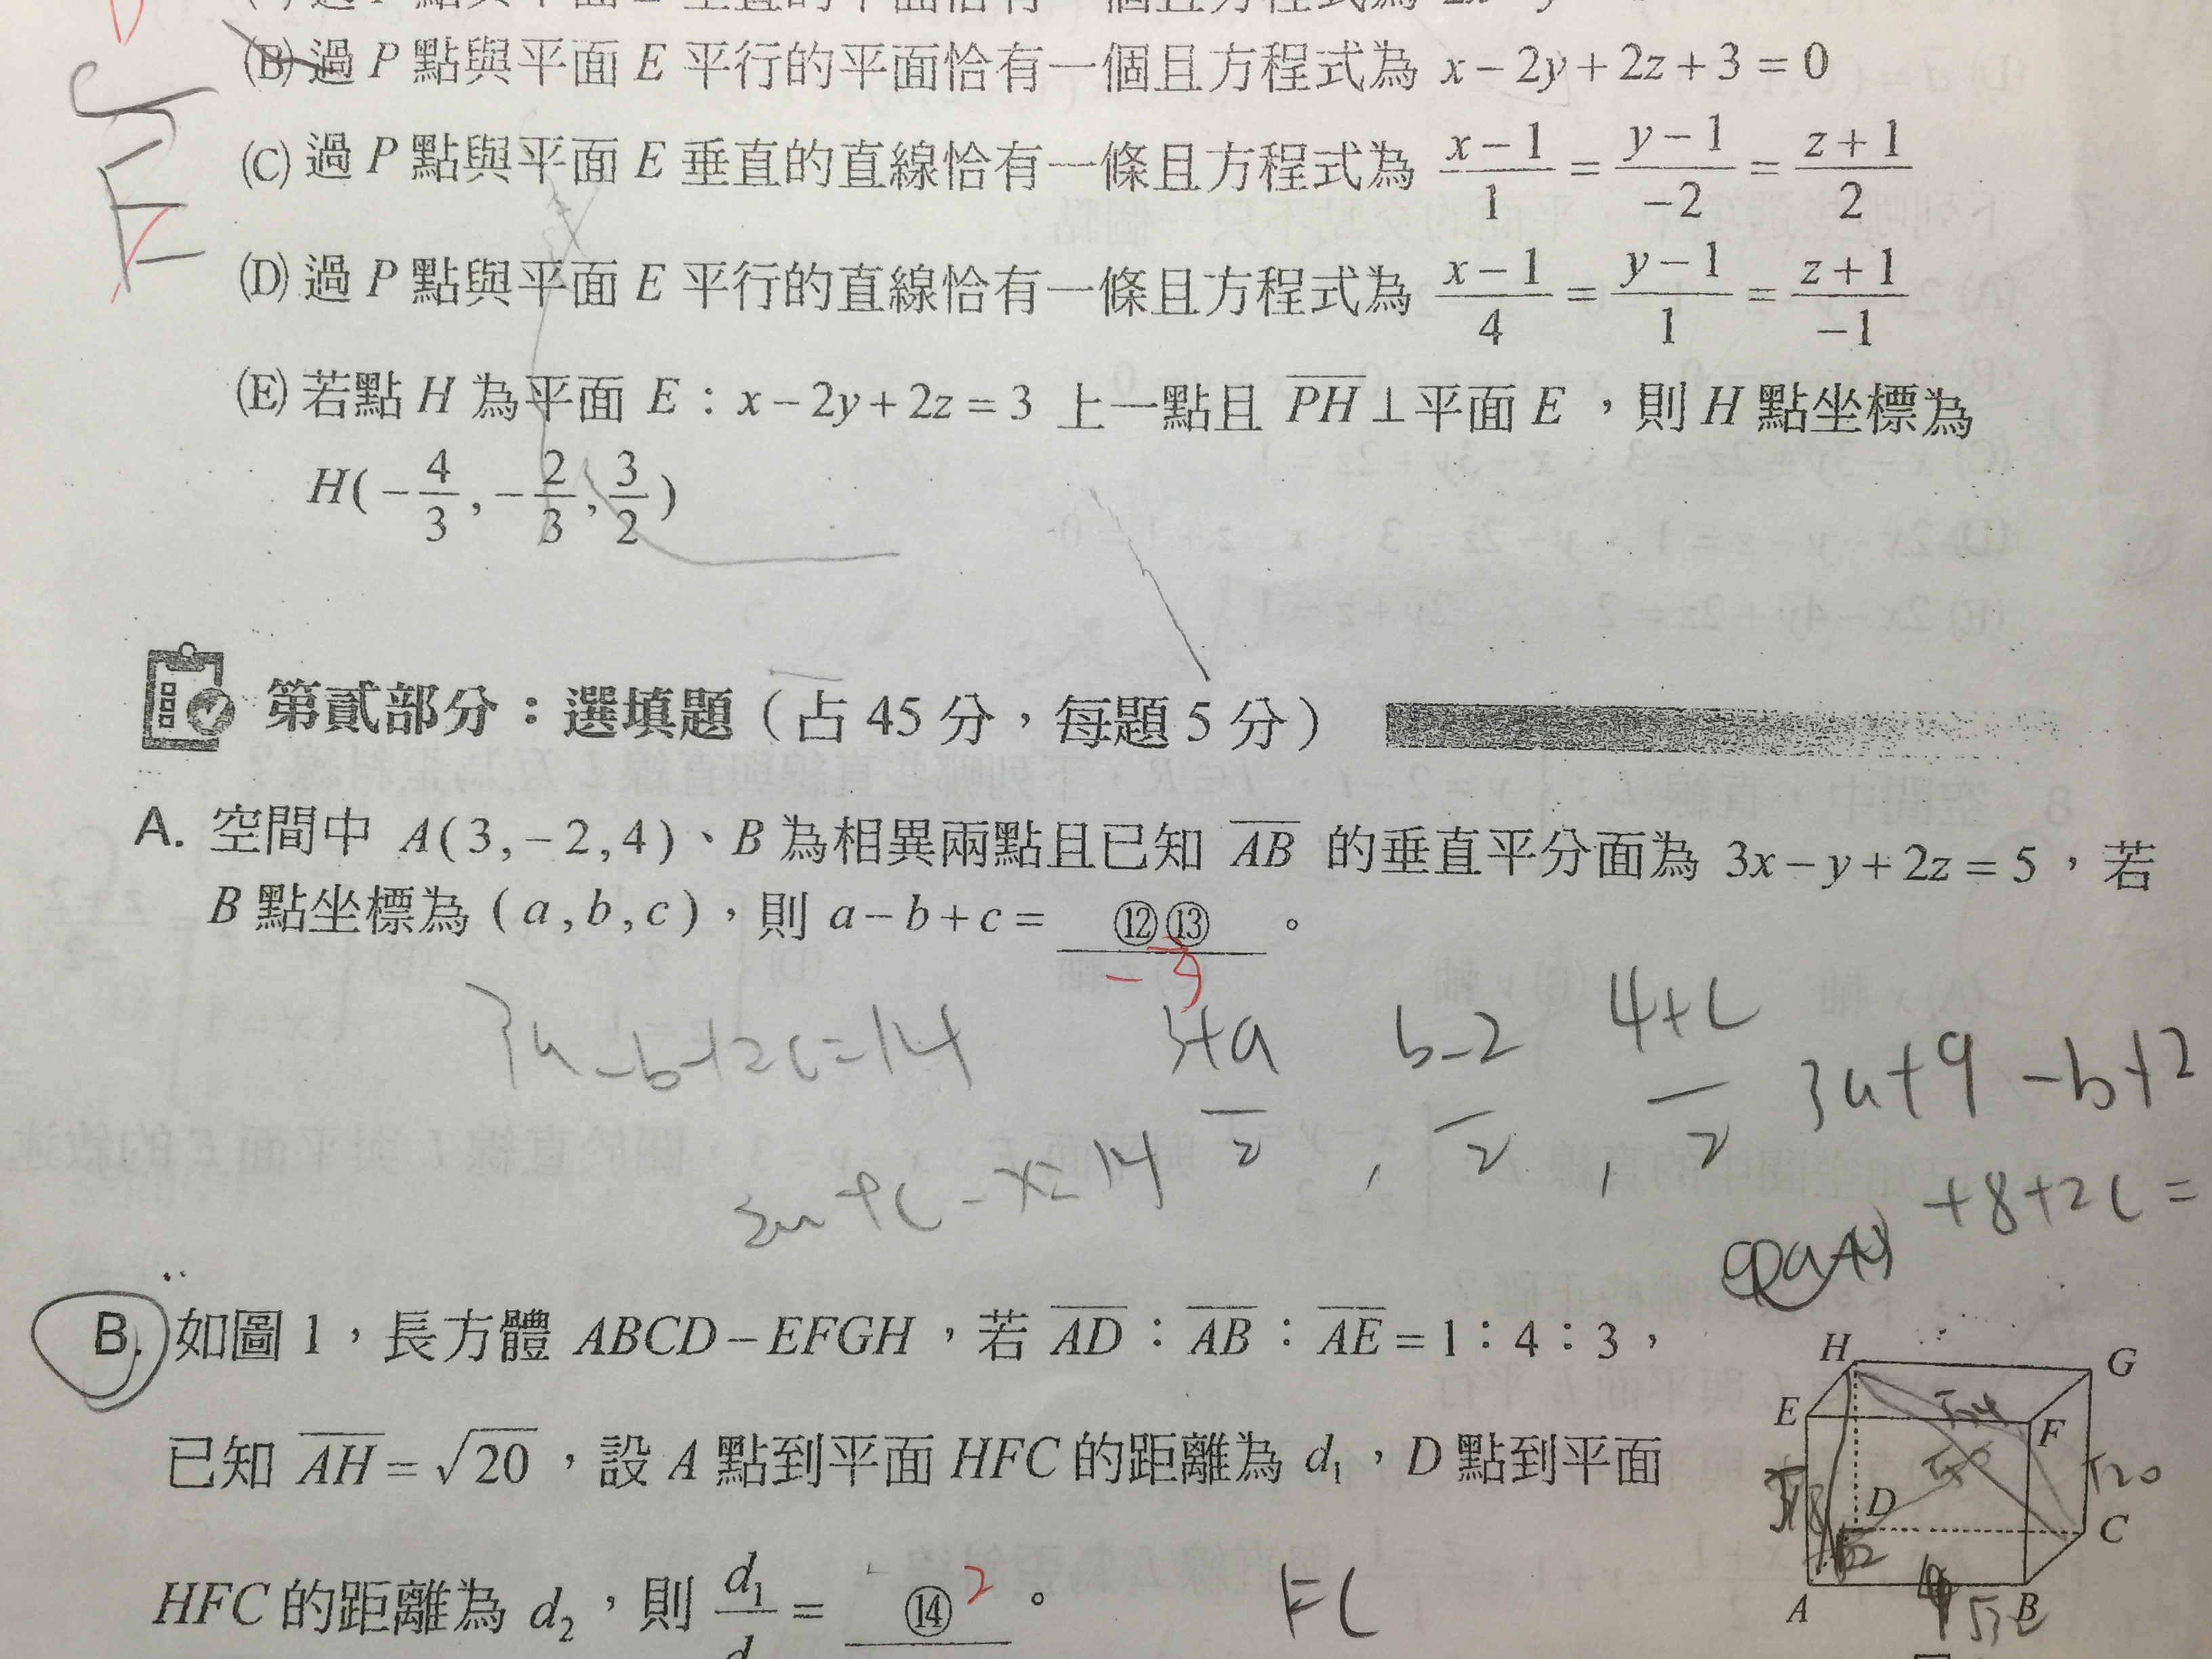 (B) 過 P 點與平面 E 平行的平面恰有一個且方程式為 x − 2y + 2z + 3 = 0
(C) 過 P 點與平面 E 垂直的直線恰有一條且方程式為 (x − 1)/1 = (y − 1)/−2 = (z + 1)/2
(D) 過 P 點與平面 E 平行的直線恰有一條且方程式為 (x − 1)/4 = (y − 1)/1 = (z + 1)/−1
(E) 若點 H 為平面 E：x − 2y + 2z = 3 上一點且 \overline{PH} ⊥ 平面 E ，則 H 點坐標為
H(−4/3, −2/3, 3/2)
第貳部分：選填題（占 45 分，每題 5 分）
A. 空間中 A(3, −2, 4)、B 為相異兩點且已知 \overline{AB} 的垂直平分面為 3x − y + 2z = 5，若
B 點坐標為 (a, b, c)，則 a − b + c = ⑫⑬ 。
3a − b + 2c = 14
(3+a)/2 , (b−2)/2 , (4+c)/2
3a + 9 − b + 2
+ 8 + 2c =
B. 如圖 1，長方體 ABCD − EFGH，若 \overline{AD}：\overline{AB}：\overline{AE} = 1：4：3，
已知 \overline{AH} = √20，設 A 點到平面 HFC 的距離為 d₁，D 點到平面
HFC 的距離為 d₂，則 d₁/d = ⑭ 2 。
H
G
E
F
√20
D
C
A
B